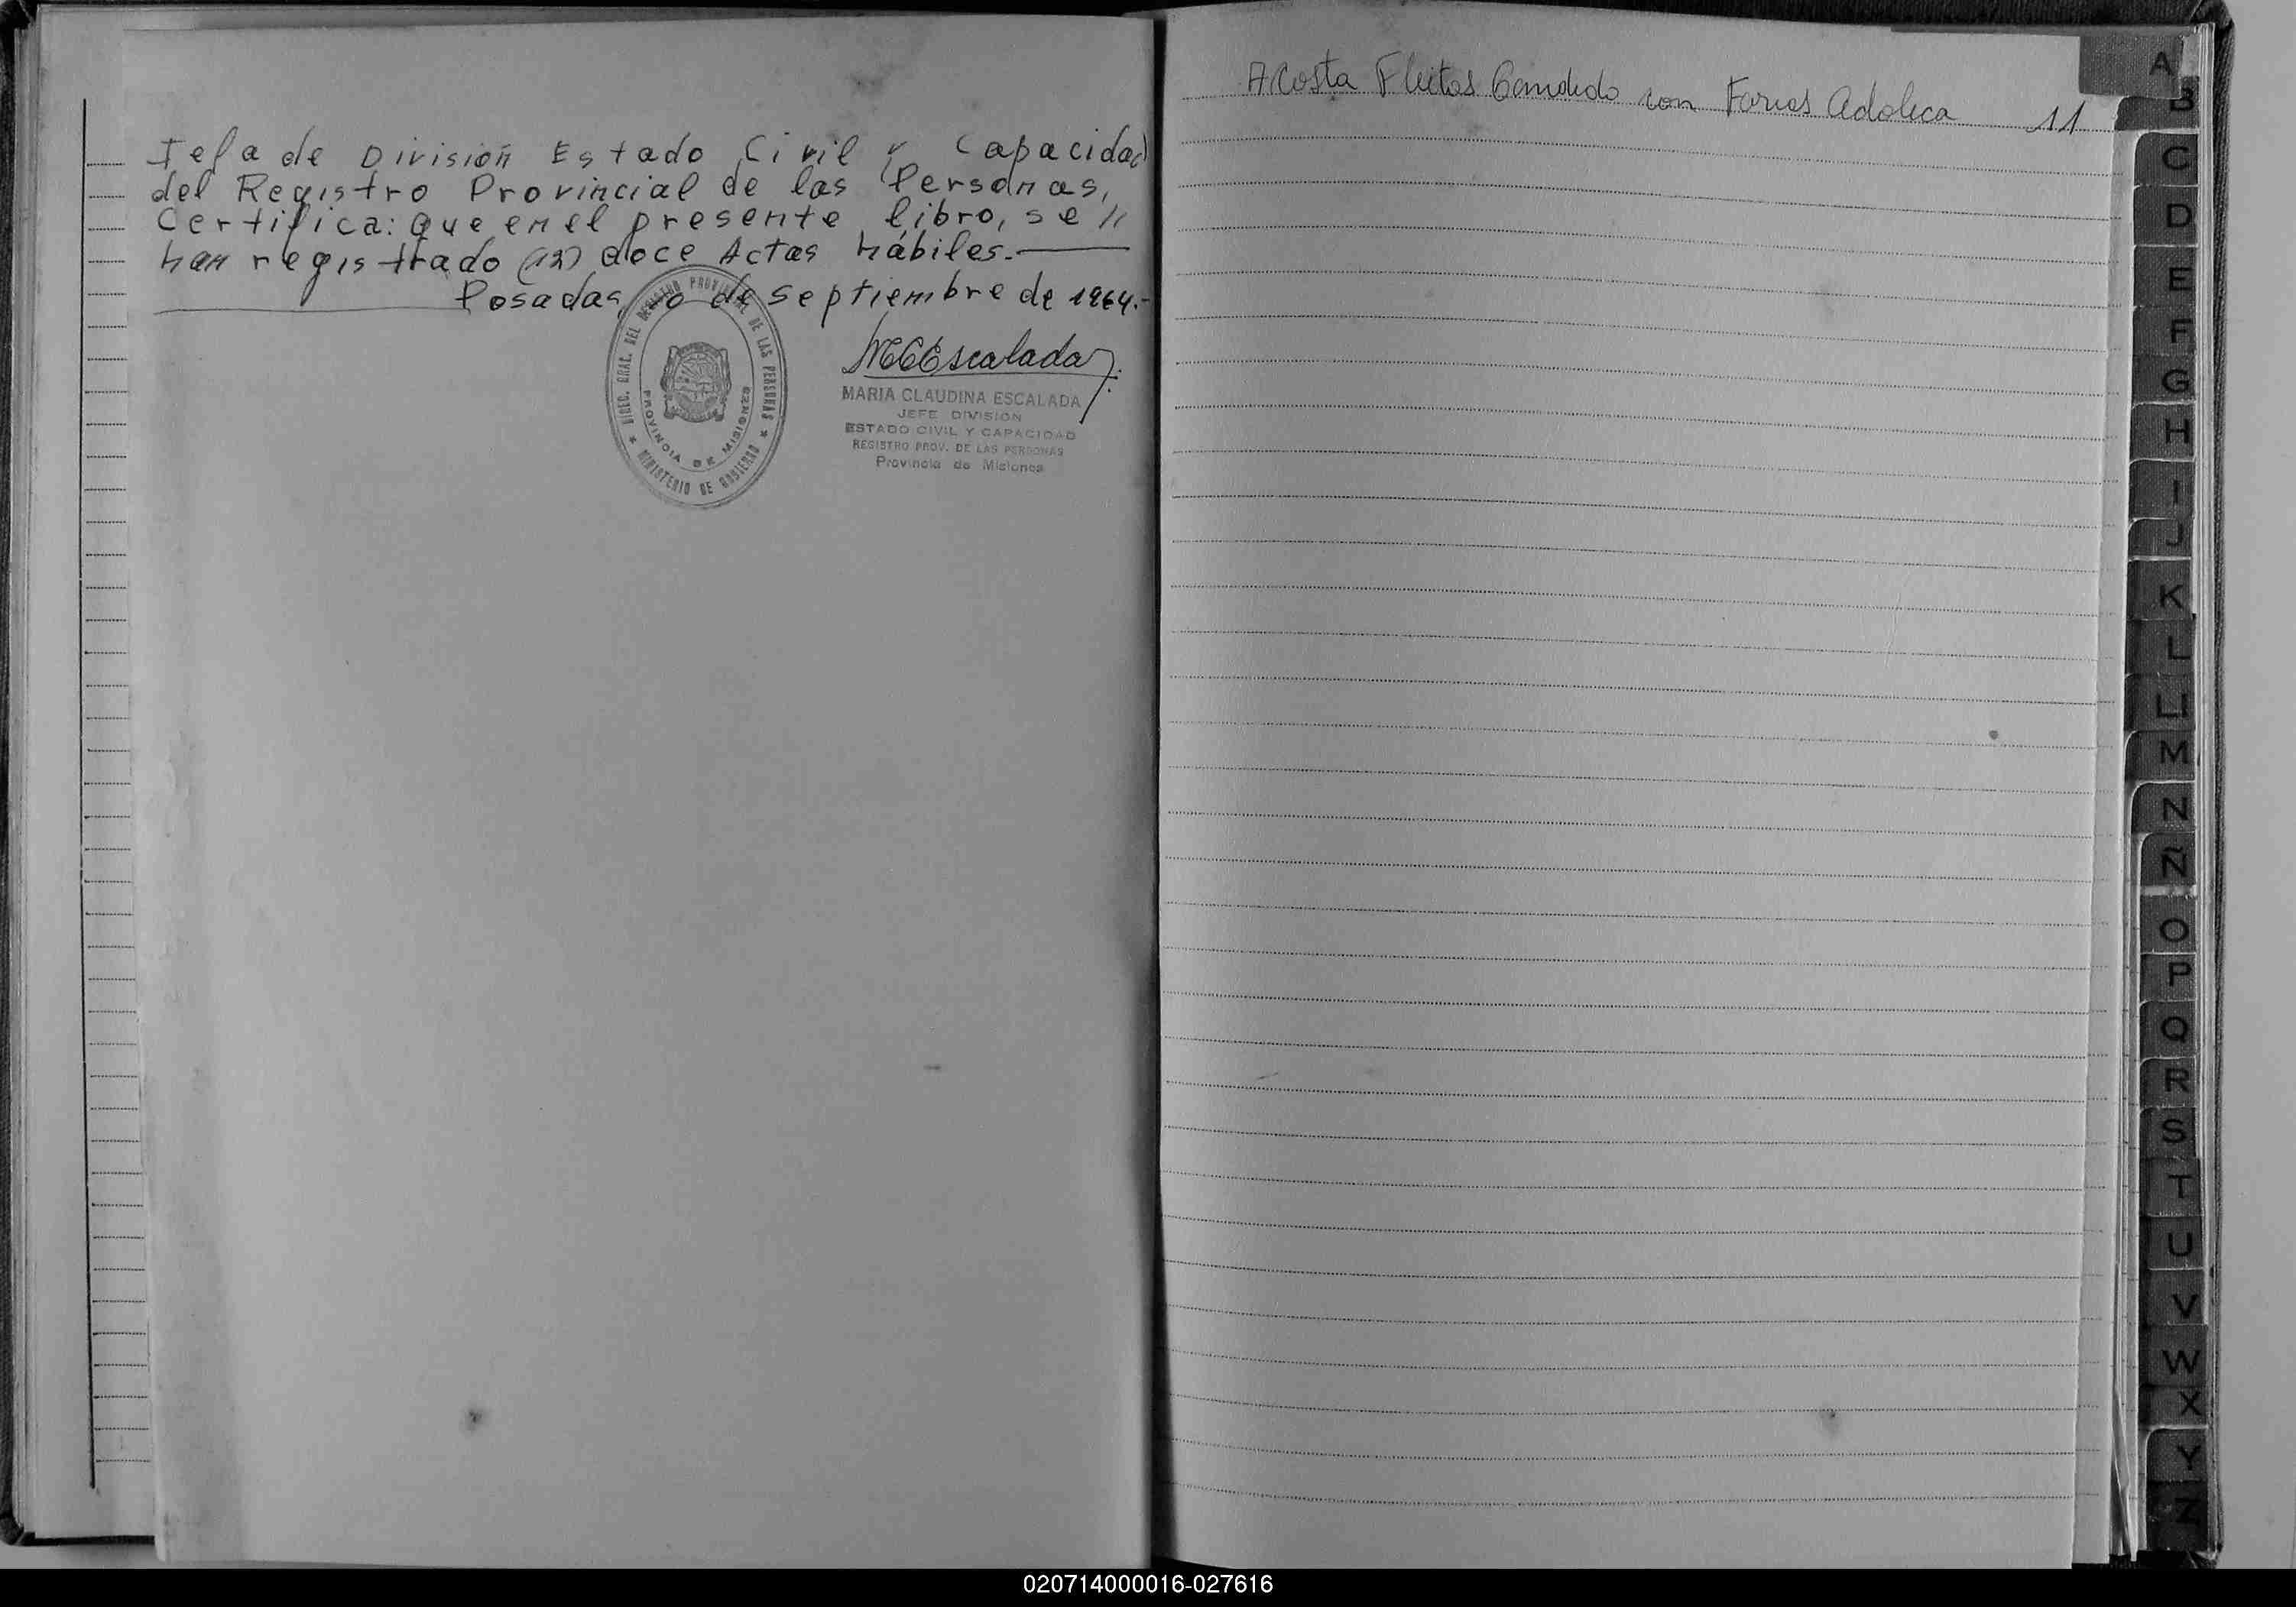 Jefa de División Estado Civil y Capacidad
del Registro Provincial de las Personas,
Certifica: que en el presente libro, se //
han registrado (12) doce Actas hábiles.-
Posadas, de septiembre de 1964.-
DIREC. GRAL. DEL REGISTRO PROVINCIAL DE LAS PERSONAS
PROVINCIA DE MISIONES
MINISTERIO DE GOBIERNO
MCEscalada
MARIA CLAUDINA ESCALADA
JEFE DIVISION
ESTADO CIVIL Y CAPACIDAD
REGISTRO PROV. DE LAS PERSONAS
Provincia de Misiones
Acosta Fleitas Candido con Farias Adoleca 11
A
B
C
D
E
F
G
H
I
J
K
L
LL
M
N
Ñ
O
P
Q
R
S
T
U
V
W
X
Y
Z
020714000016-027616